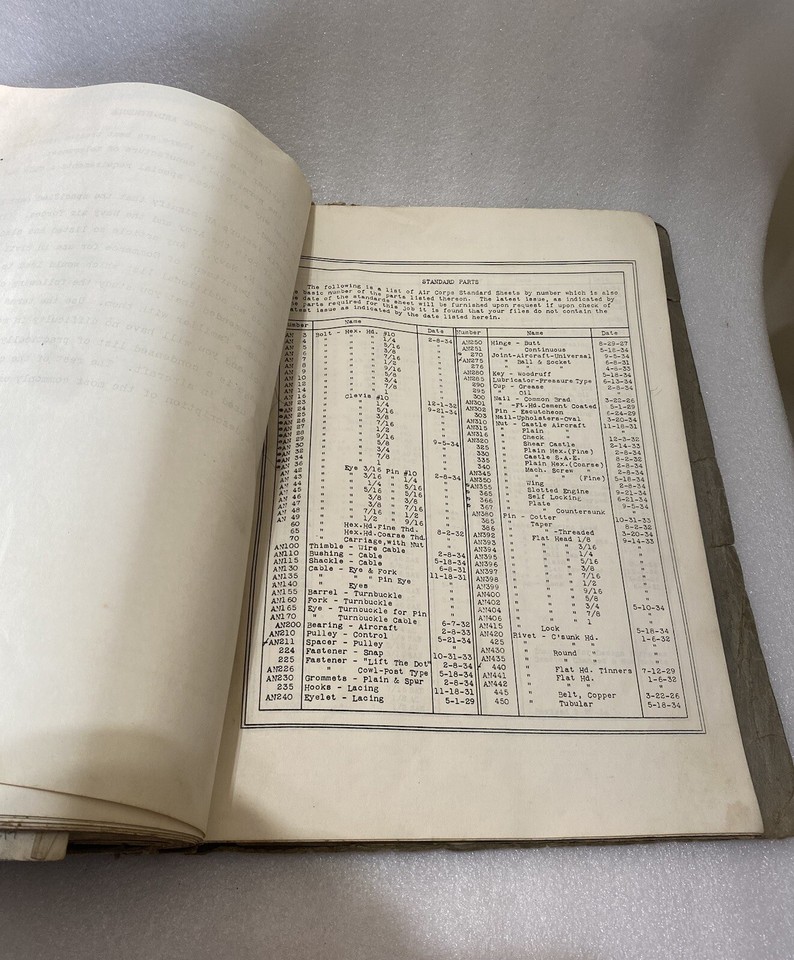 STANDARD PARTS
The following is a list of Air Corps Standard Sheets by number which is also
basic number of the parts listed thereon. The latest issue, as indicated by
date of the standards sheet will be furnished upon request if upon check of
parts required for this job it is found that your files do not contain the
latest issue as indicated by the date listed herein.
Number Name Date
AN 3 Bolt - Hex. Hd. #10 2-8-34
4 " " " 1/4 "
5 " " " 5/16 "
6 " " " 3/8 "
7 " " " 7/16 "
8 " " " 1/2 "
9 " " " 9/16 "
10 " " " 5/8 "
12 " " " 3/4 "
14 " " " 7/8 "
16 " " " 1
23 " Clevis #10 12-1-32
24 " " 1/4 9-21-34
25 " " 5/16 "
26 " " 3/8 "
27 " " 7/16 "
28 " " 1/2 "
29 " " 9/16 "
30 " " 5/8 9-5-34
32 " " 3/4 "
34 " " 7/8 "
36 "
42 " Eye 3/16 Pin #10 2-8-34
43 " " 3/16 " 1/4 "
44 " " 1/4 " 5/16 "
45 " " 5/16 " 5/16 "
46 " " 3/8 " 3/8 "
47 " " 3/8 " 7/16 "
48 " " 7/16 " 1/2 "
49 " " 1/2 " 9/16 "
60 " Hex.Hd.Fine Thd. "
65 " Hex.Hd.Coarse Thd. 8-2-32
70 " Carriage,with Nut "
AN100 Thimble - Wire Cable
AN110 Bushing - Cable 2-8-34
AN115 Shackle - Cable 5-18-34
AN130 Cable - Eye & Fork 6-8-31
AN135 " " " Pin Eye 11-18-31
AN140 " Eyes "
AN155 Barrel - Turnbuckle "
AN160 Fork - Turnbuckle "
AN165 Eye - Turnbuckle for Pin "
AN170 " Turnbuckle Cable "
AN200 Bearing - Aircraft 6-7-32
AN210 Pulley - Control 2-8-33
AN211 Spacer - Pulley 5-21-34
224 Fastener - Snap "
225 Fastener - "Lift The Dot" 10-31-33
AN226 " Cowl-Post Type 2-8-34
AN230 Grommets - Plain & Spur 5-18-34
235 Hooks - Lacing 2-8-34
AN240 Eyelet - Lacing 11-18-31
5-1-29
Number Name Date
AN250 Hinge - Butt 8-29-27
AN251 " Continuous 5-18-34
270 Joint-Aircraft-Universal 9-5-34
AN275 " Ball & Socket 6-8-31
276 " " 4-8-33
AN280 Key - Woodruff 5-18-34
AN285 Lubricator-Pressure Type 6-13-34
290 Cup - Grease 2-8-34
295 " Oil "
300 Nail - Common Brad 3-22-26
AN301 " -Ft.Hd.Cement Coated 5-1-29
AN302 Pin - Escutcheon 6-24-29
303 Nail-Upholsters-Oval 3-20-34
AN310 Nut - Castle Aircraft 11-18-31
AN315 " Plain "
AN316 " Check "
AN320 " Shear Castle 12-3-32
325 " Plain Hex.(Fine) 2-14-33
330 " Castle S.A.E. 2-8-34
335 " Plain Hex.(Coarse) 8-2-32
340 " Mach. Screw " 2-8-34
AN345 " " " (Fine) 2-8-34
AN350 " Wing 5-18-34
AN355 " Slotted Engine 2-8-34
365 " Self Locking 9-21-34
366 " Plate 6-21-34
367 " " Countersunk 9-5-34
AN380 Pin - Cotter "
385 " Taper 10-31-33
386 " " -Threaded 8-2-32
AN392 " Flat Head 1/8 3-20-34
AN393 " " " 3/16 9-14-33
AN394 " " " 1/4 "
AN395 " " " 5/16 "
AN396 " " " 3/8 "
AN397 " " " 7/16 "
AN398 " " " 1/2 "
AN399 " " " 9/16 "
AN400 " " " 5/8 "
AN402 " " " 3/4 "
AN404 " " " 7/8 "
AN406 " " " 1 "
AN415 " Lock 5-10-34
AN420 Rivet - C'sunk Hd. 5-18-34
425 " " " 1-6-32
AN430 " Round " "
AN435 " " " "
440 " Flat Hd. Tinners 7-12-29
AN441 " Flat Hd. 1-6-32
AN442 " " " "
445 " Belt, Copper 3-22-26
450 " Tubular 5-18-34